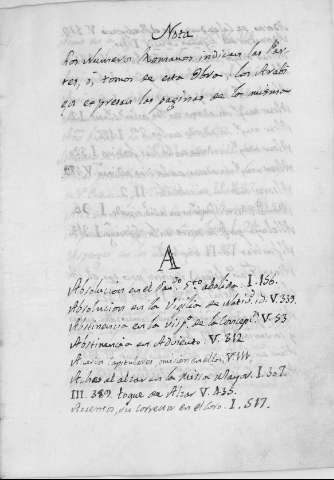 Nota
Los Numeros Romanos indican las Par-
tes, ó tomos de esta Obra, los Arabi-
gos expresan las paginas de la misma
A
Absolucion en el abolida. I. 156.
Absolucion en la Vigilia de id. V. 339.
Abstinencia en la Visp.ª de la Concepⁿ V. 53
Abstinencia en Adviento. V. 312
Acesos Capitulares V. 111.
en el altar en la Missa Mayor. I. 307.
III. 389. toque de Alzar V. 435.
Asientos, su correr en el Coro. I. 517.